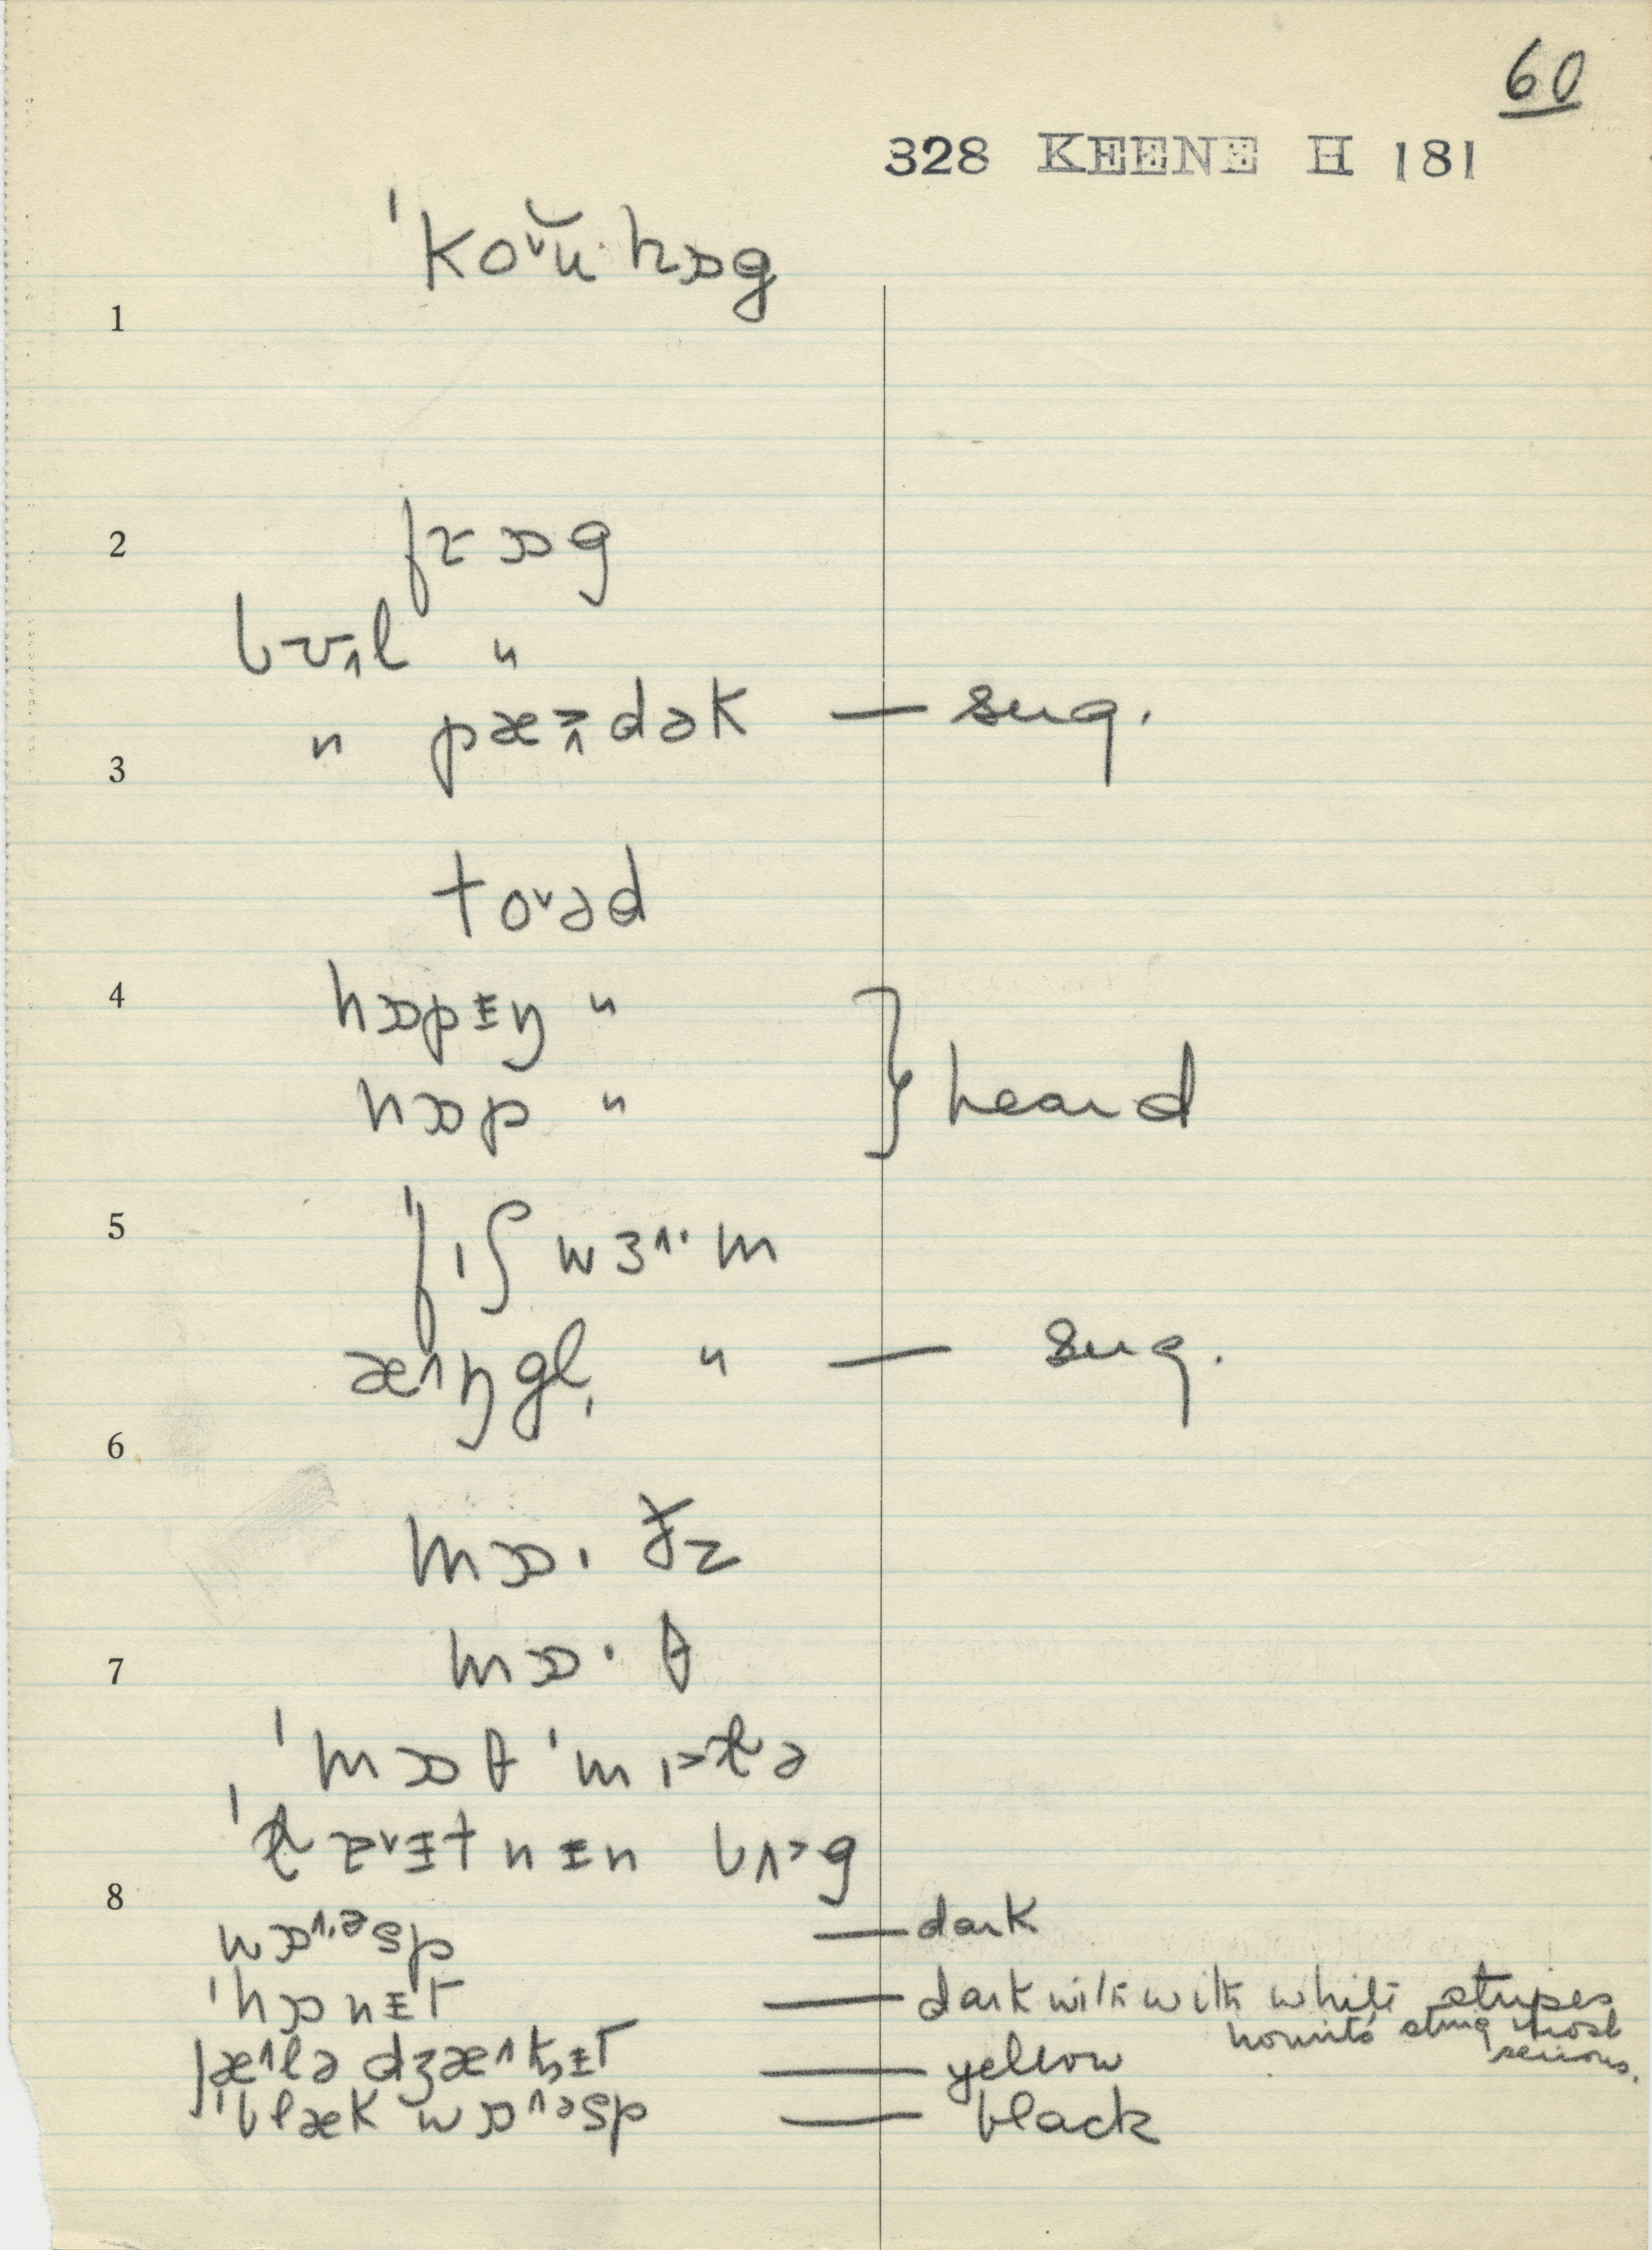 60
328 KEENE H 181
ˈkoˇŭ·hɒg
1
2 frɒg
bʊ˄l "
" pæ>˄dək — sug.
3
toˇəd
4 hɒpɪŋ " } heard
hɒp "
5 ˈfɪʃ wɜ˄·m
æ˄ŋgl̩ " — sug.
6
mɒ·ðz
7 mɒ·θ
ˈmɒθ ˈmɪ>lə
8
wɒ˄·əsp — dark
ˈhɒnɨt — dark with with white stripes
hornets sting most
serious.
jæ˄lə dʒæ˄kɨt — yellow
ˈblæk wɒ˄əsp — black